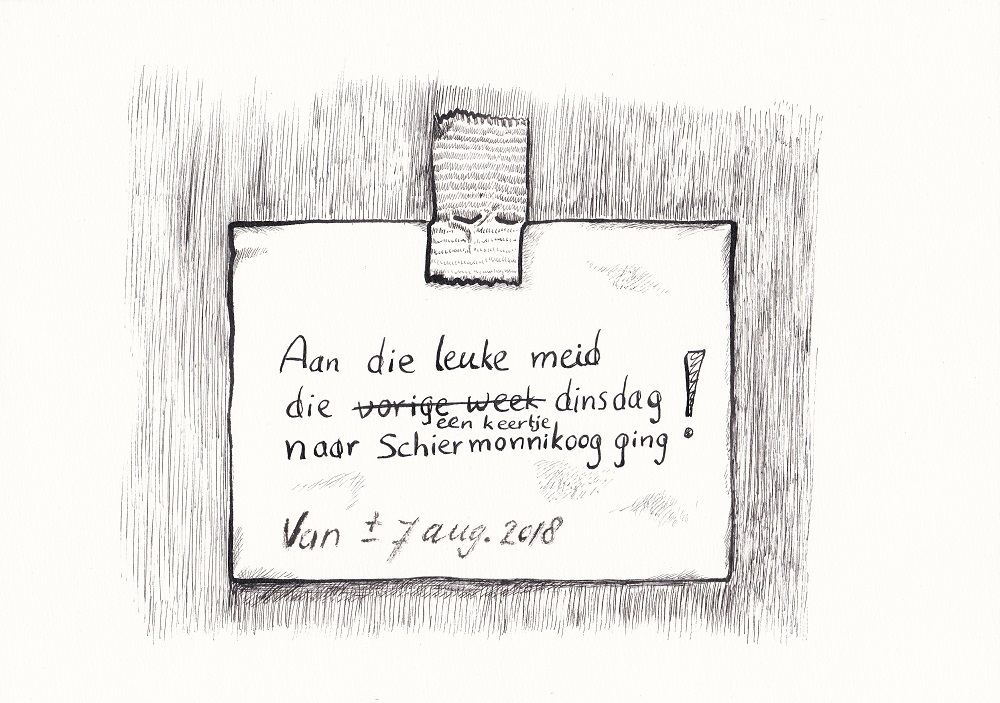 Aan die leuke meid
die vorige week dinsdag !
één keertje
naar Schiermonnikoog ging
Van ± 7 aug. 2018